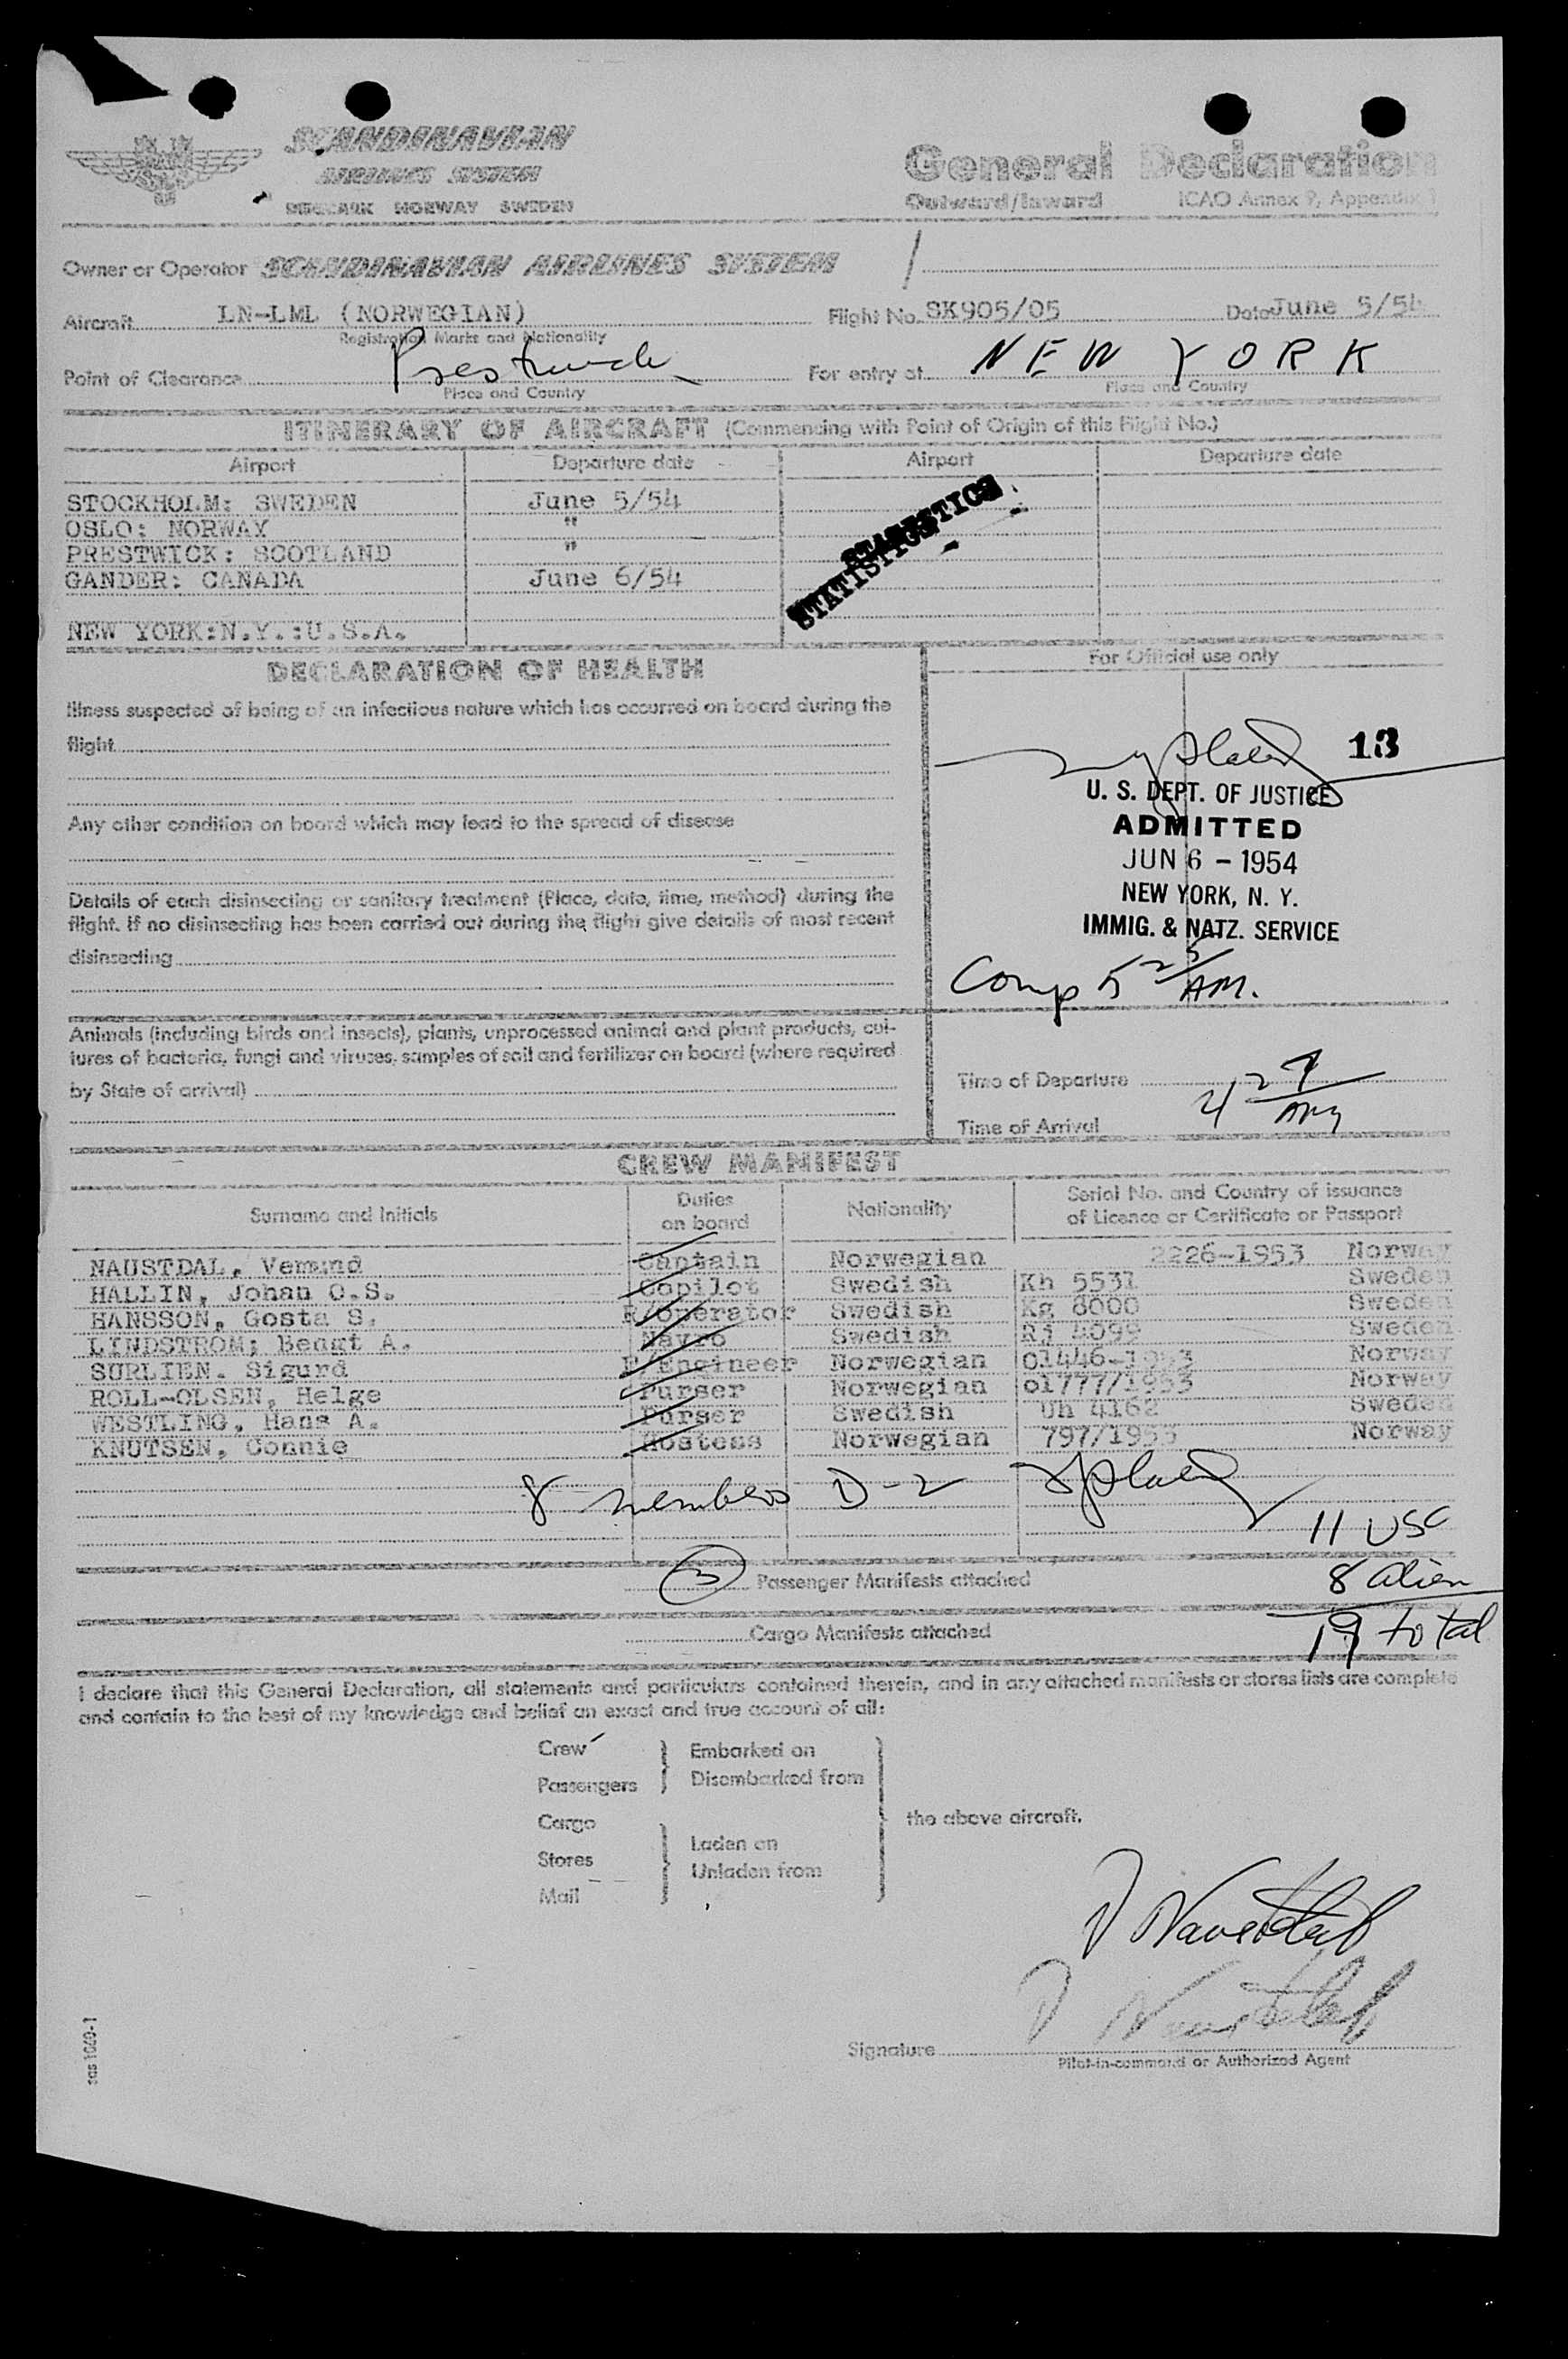 SCANDINAVIAN
AIRLINES SYSTEM
DENMARK NORWAY SWEDEN
General Declaration
Outward/Inward ICAO Annex 9, Appendix 1
Owner or Operator SCANDINAVIAN AIRLINES SYSTEM
Aircraft LN-LML (NORWEGIAN) Flight No. SK905/05 Date June 5/54
Registration Marks and Nationality
Point of Clearance Prestwick For entry at NEW YORK
Place and Country Place and Country
ITINERARY OF AIRCRAFT (Commencing with Point of Origin of this Flight No.)
Airport Departure date Airport Departure date
STOCKHOLM: SWEDEN June 5/54
OSLO: NORWAY "
PRESTWICK: SCOTLAND "
GANDER: CANADA June 6/54
NEW YORK:N.Y.:U.S.A.
STATISTICS
STATISTICS
DECLARATION OF HEALTH
For Official use only
Illness suspected of being of an infectious nature which has occurred on board during the
flight
Any other condition on board which may lead to the spread of disease
Details of each disinsecting or sanitary treatment (Place, date, time, method) during the
flight. If no disinsecting has been carried out during the flight give details of most recent
disinsecting
13
U. S. DEPT. OF JUSTICE
ADMITTED
JUN 6 - 1954
NEW YORK, N. Y.
IMMIG. & NATZ. SERVICE
Comp 5 25 AM.
Animals (including birds and insects), plants, unprocessed animal and plant products, cul-
tures of bacteria, fungi and viruses, samples of soil and fertilizer on board (where required
by State of arrival)
Time of Departure
Time of Arrival
CREW MANIFEST
Surname and Initials Duties on board Nationality Serial No. and Country of issuance of Licence or Certificate or Passport
NAUSTDAL, Vemund Captain Norwegian 2226-1953 Norway
HALLIN, Johan O.S. Copilot Swedish Kh 5531 Sweden
HANSSON, Gosta S. R/Operator Swedish Kg 8000 Sweden
LINDSTROM; Bengt A. Navro Swedish Rj 4099 Sweden
SURLIEN. Sigurd F/Engineer Norwegian 01446-1953 Norway
ROLL-OLSEN, Helge Purser Norwegian 01777/1953 Norway
WESTLING, Hans A. Purser Swedish Uh 4162 Sweden
KNUTSEN, Connie Hostess Norwegian 797/1953 Norway
8 members D-2
11 USC
3 Passenger Manifests attached 8 alien
Cargo Manifests attached 19 total
I declare that this General Declaration, all statements and particulars contained therein, and in any attached manifests or stores lists are complete
and contain to the best of my knowledge and belief an exact and true account of all:
Crew Embarked on
Passengers Disembarked from
Cargo the above aircraft.
Stores Laden on
Mail Unladen from
V Naustdal
V Naustdal
Signature
Pilot-in-command or Authorized Agent
sas 1060-1